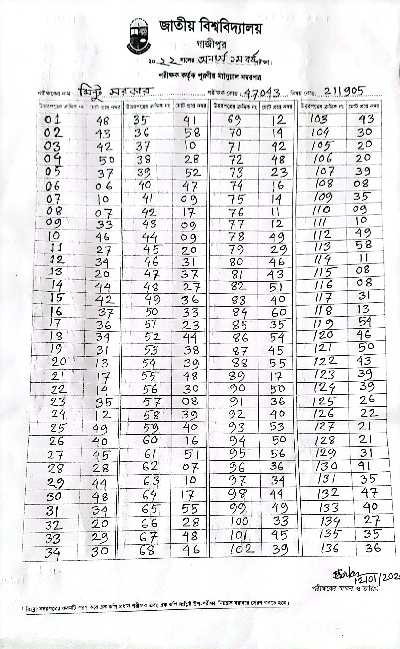 জাতীয় বিশ্ববিদ্যালয়
গাজীপুর
২০২২ সালের অনার্স ১ম বর্ষ পরীক্ষা
পরীক্ষক কর্তৃক পূরণীয় ম্যানুয়াল নম্বরপত্র
পরীক্ষকের নাম মিন্টু সরকার পরীক্ষক কোড 47043 বিষয় কোড 211905
উত্তরপত্রের ক্রমিক নং মোট প্রাপ্ত নম্বর উত্তরপত্রের ক্রমিক নং মোট প্রাপ্ত নম্বর উত্তরপত্রের ক্রমিক নং মোট প্রাপ্ত নম্বর উত্তরপত্রের ক্রমিক নং মোট প্রাপ্ত নম্বর
01 48 35 41 69 12 103 43
02 43 36 58 70 14 104 30
03 42 37 10 71 42 105 20
04 50 38 28 72 48 106 20
05 37 39 52 73 23 107 39
06 06 40 47 74 16 108 08
07 10 41 09 75 14 109 35
08 07 42 17 76 11 110 09
09 33 43 09 77 12 111 10
10 46 44 09 78 49 112 49
11 27 45 20 79 29 113 58
12 34 46 31 80 46 114 11
13 20 47 37 81 43 115 08
14 44 48 27 82 51 116 08
15 42 49 36 83 40 117 31
16 37 50 33 84 60 118 13
17 36 51 23 85 35 119 54
18 34 52 44 86 54 120 46
19 31 53 38 87 45 121 50
20 13 54 39 88 55 122 43
21 17 55 48 89 17 123 39
22 56 30 90 50 124 39
23 35 57 08 91 36 125 26
24 12 58 39 92 40 126 22
25 49 59 40 93 53 127 21
26 40 60 16 94 50 128 21
27 45 61 51 95 56 129 31
28 28 62 07 96 36 130 41
29 44 63 10 97 34 131 35
30 48 64 17 98 44 132 47
31 34 65 55 99 49 133 40
32 20 66 28 100 33 134 27
33 29 67 48 101 45 135 35
34 30 68 46 102 39 136 36
12/01/202
পরীক্ষকের স্বাক্ষর ও তারিখ